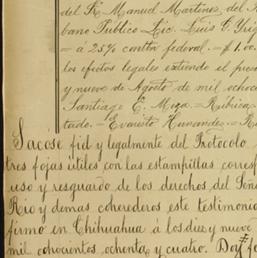 del Sr Manuel Martinez, del R
bano Publico Lic. Luis G. Yrig
= á 25% contbn federal = $1.00
los efectos legales extiendo el prese
y nueve de Agosto de mil ochoc
Santiago E. Meza = Rúbrica
tado = Evaristo Hernandez = R
Sacose fiel y legalmente del Protocolo
tres fojas útiles con las estampillas corresp
uso y resguardo de los derechos del Señ
Rio y demas coherederos este testimonio
firmo en Chihuahua á los diez y nueve
mil ochocientos ochenta y cuatro. Doy fe